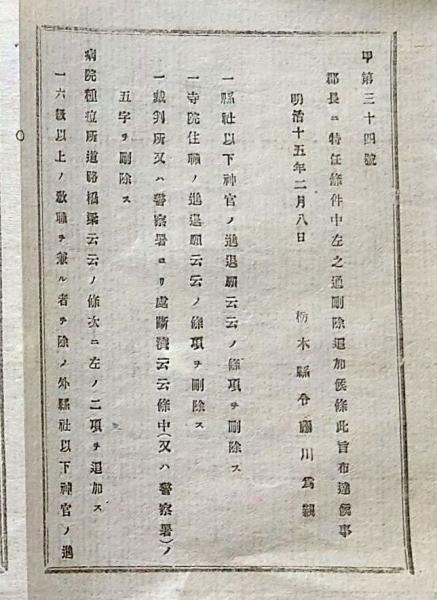 甲第三十四號
郡長ニ特任條件中左之通刪除追加候條此旨布達候事
明治十五年二月八日
栃木縣令藤川爲親
一縣社以下神官ノ進退願云云ノ條項ヲ刪除ス
一寺院住職ノ進退願云云ノ條項ヲ刪除ス
一裁判所又ハ警察署ヨリ處斷濟云云條中(又ハ警察署)ノ
五字ヲ刪除ス
病院種痘所道路橋梁云云ノ條次ニ左ノ二項ヲ追加ス
一六級以上ノ敎職ヲ兼ル者ヲ除ノ外縣社以下神官ノ進